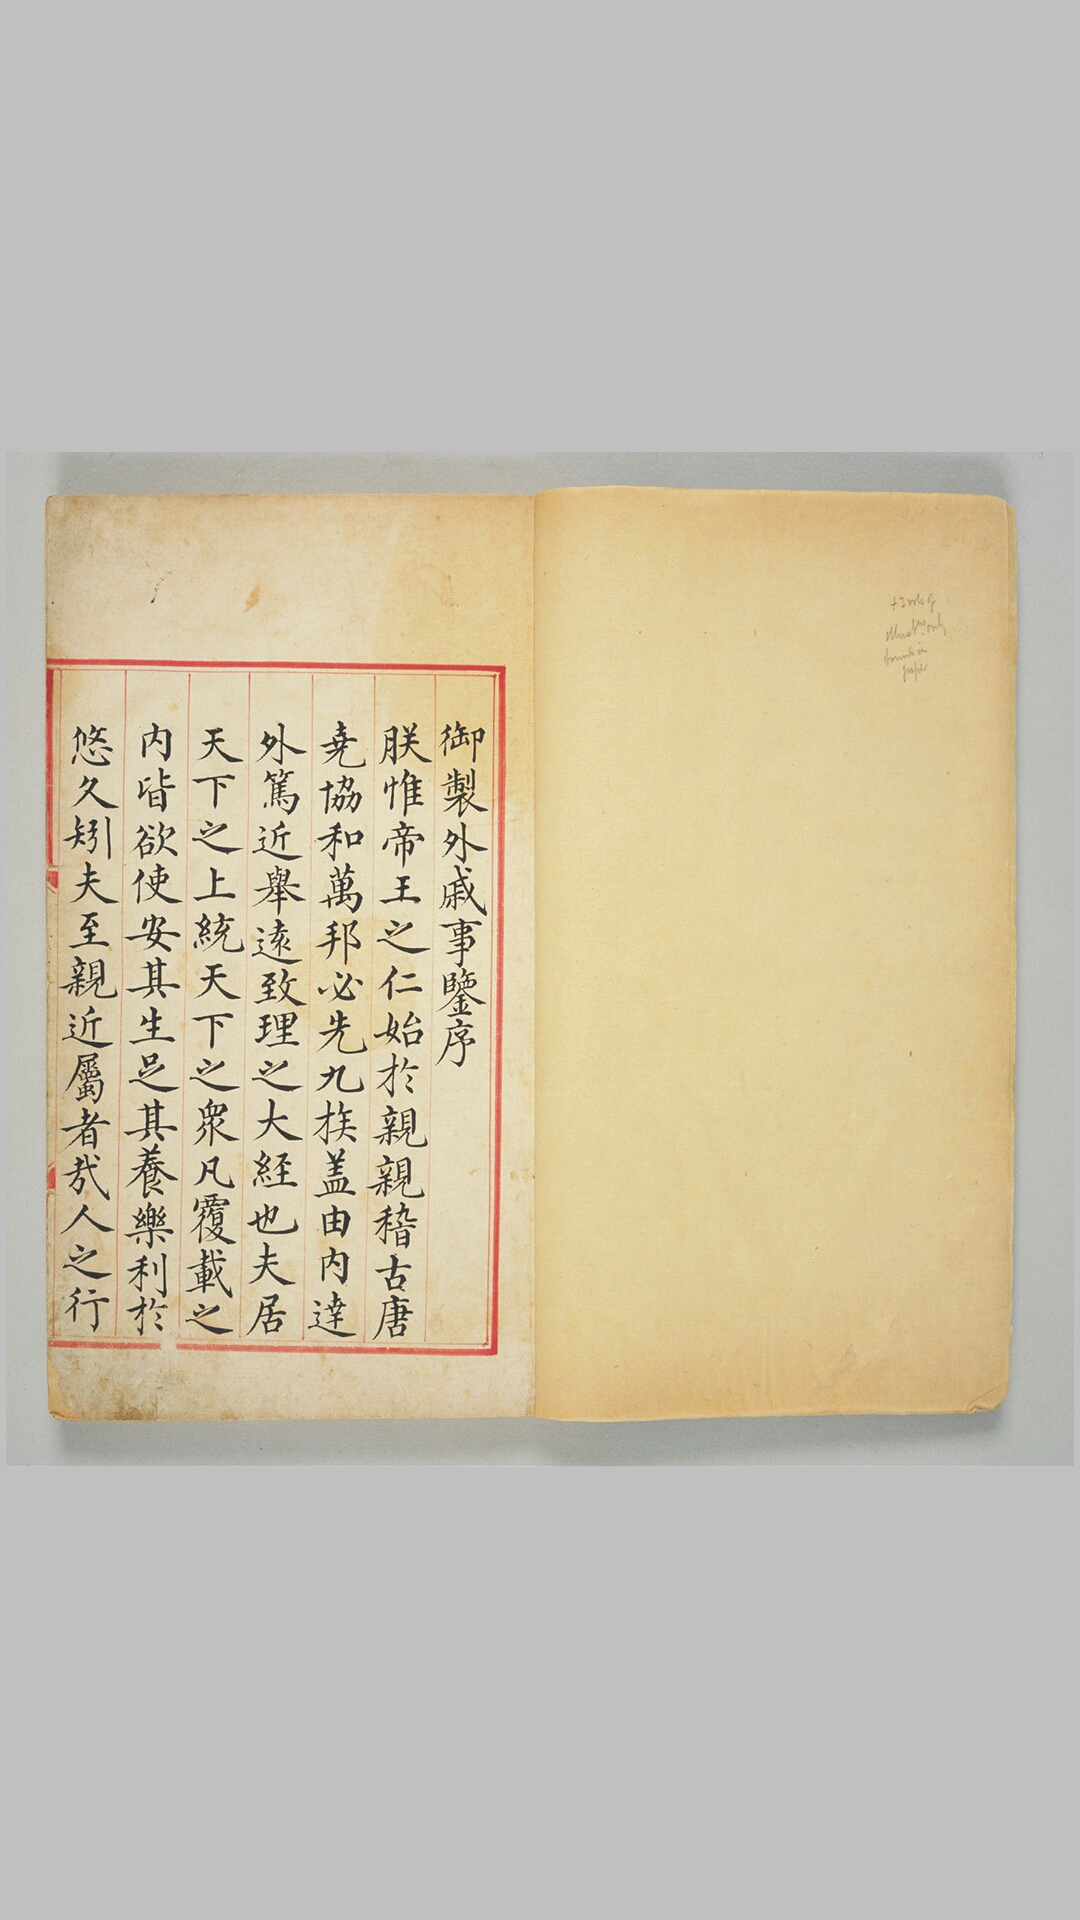 御製外戚事鑒序
朕惟帝王之仁始於親親稽古唐
堯協和萬邦必先九族蓋由内達
外篤近舉遠致理之大經也夫居
天下之上統天下之衆凡覆載之
内皆欲使安其生足其養樂利於
悠久矧夫至親近屬者哉人之行
+ 2 vols of
only
bound in
paper